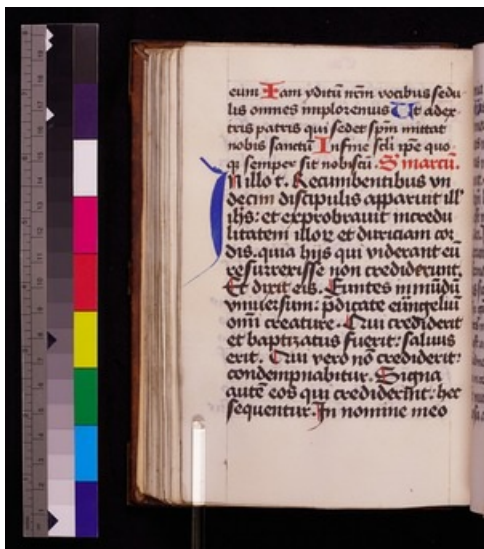 eum Iam yditū nr̄m vocibus sedu
lis omnes imploremus Ut ad dex
tris patris qui sedet spm̄ mittat
nobis sanctū In fine scli ip̄e quo
qi semper sit nobiscū. S marcū.
In illo t. Recumbentibus vn
decim discipulis apparuit ill'
ihs: et exprobrauit incredu
litatem illoꝝ et duriciam cor
dis. quia hijs qui viderant eū
resurrexisse non crediderunt.
Et dixit eis. Euntes in mūdū
vniuersum: p̄dicate euūgeliū
omni creature. Qui crediderit
et baptizatus fuerit: saluus
erit. Qui vero nō crediderit:
condempnabitur. Signa
autē eos qui crediderīnt: hec
sequentur. In nomine meo